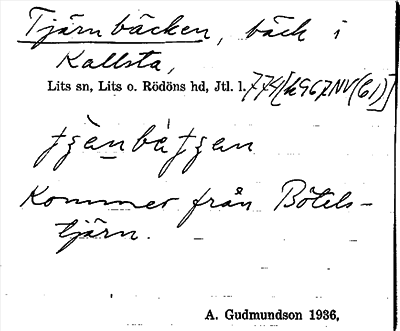 Tjärnbäcken, bäck i
Kallsta,
Lits sn, Lits o. Rödöns hd, Jtl. l.
Kommer från Bötels-
tjärn.
A. Gudmundson 1936.